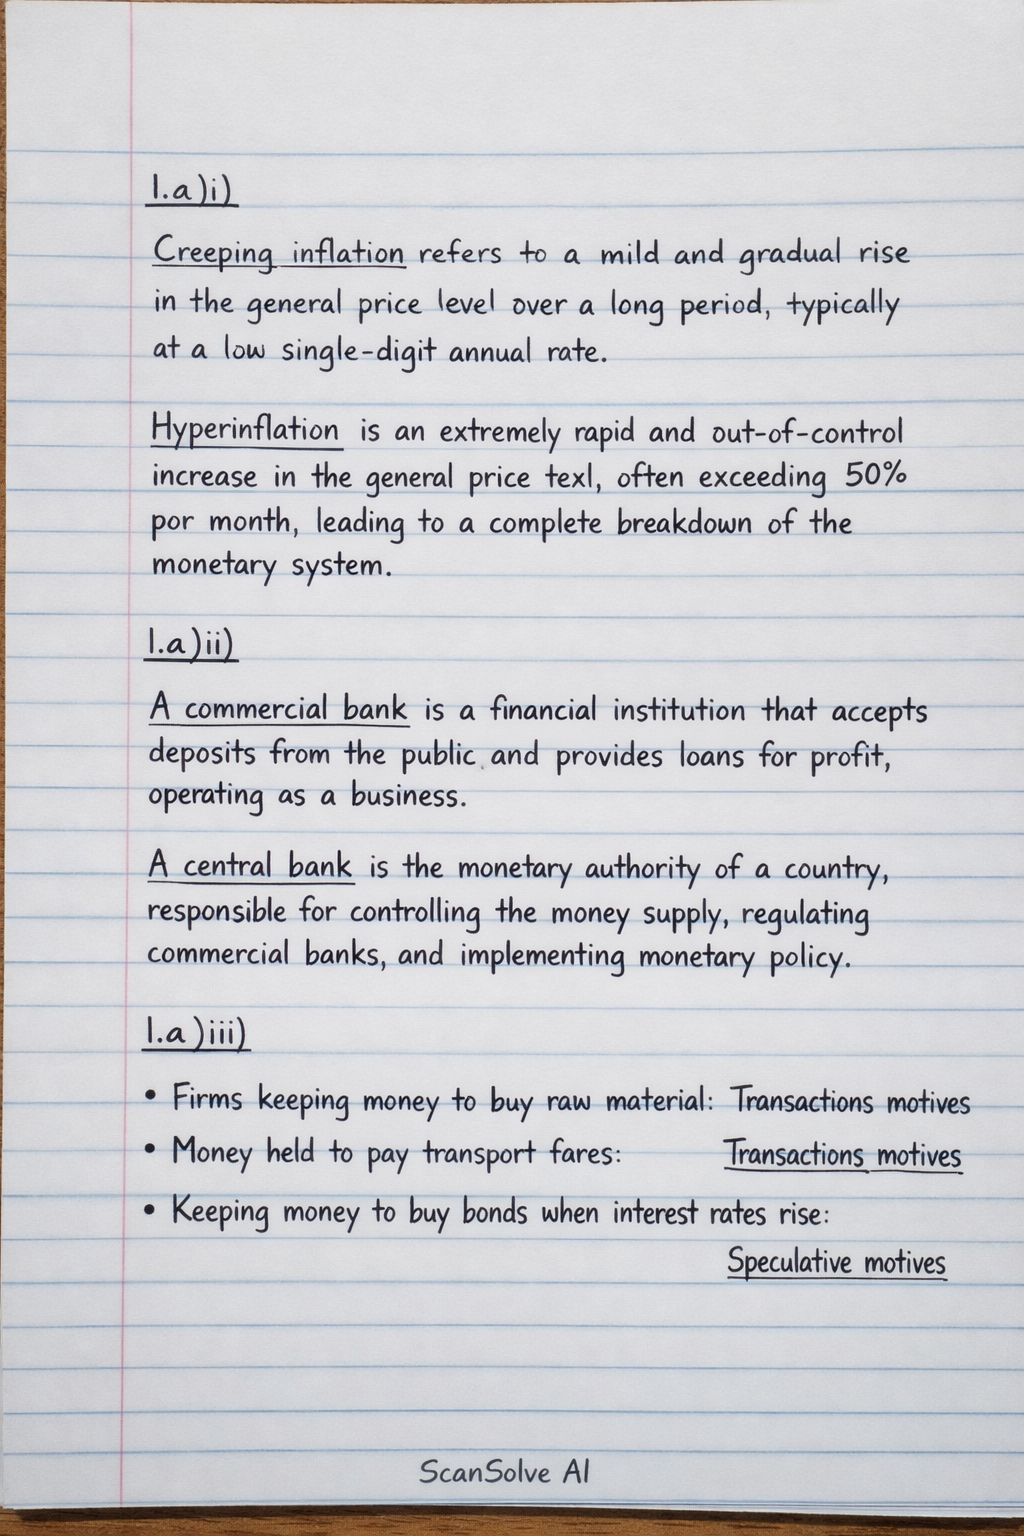 1.a)i)
Creeping inflation refers to a mild and gradual rise
in the general price level over a long period, typically
at a low single-digit annual rate.
Hyperinflation is an extremely rapid and out-of-control
increase in the general price texl, often exceeding 50%
por month, leading to a complete breakdown of the
monetary system.
1.a)ii)
A commercial bank is a financial institution that accepts
deposits from the public and provides loans for profit,
operating as a business.
A central bank is the monetary authority of a country,
responsible for controlling the money supply, regulating
commercial banks, and implementing monetary policy.
1.a)iii)
• Firms keeping money to buy raw material: Transactions motives
• Money held to pay transport fares: Transactions motives
• Keeping money to buy bonds when interest rates rise:
Speculative motives
ScanSolve AI